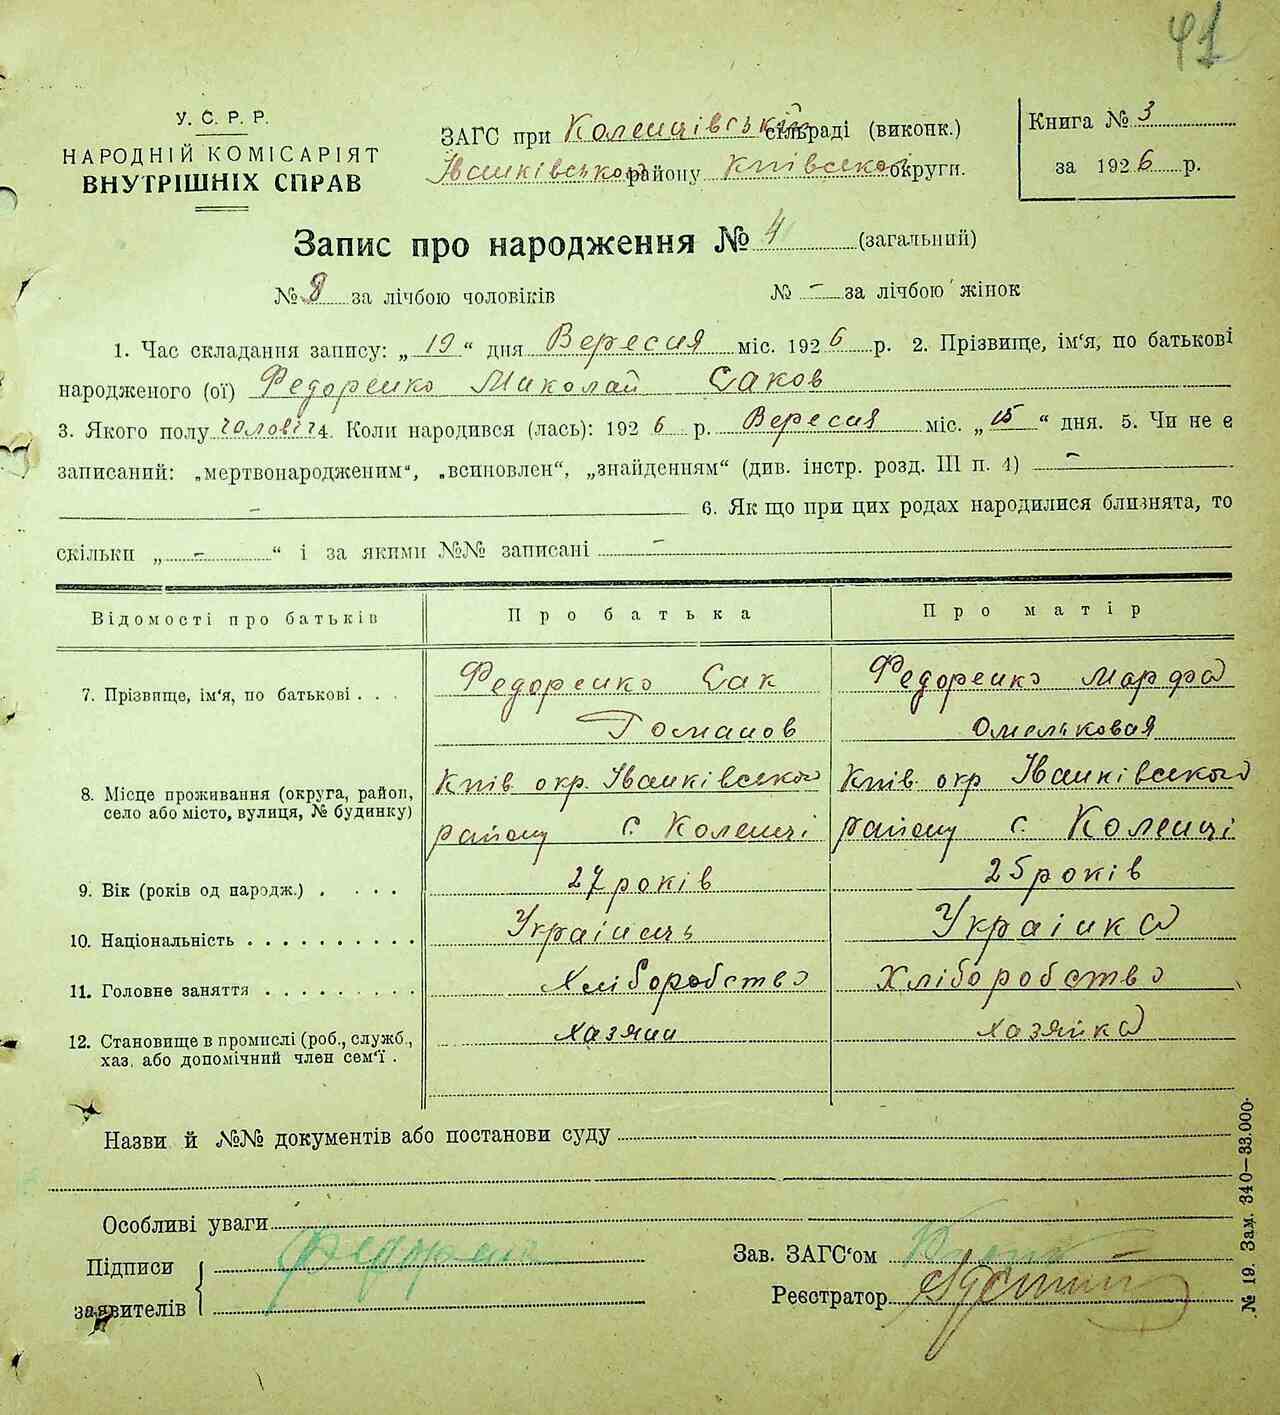 41
У. С. Р. Р.
НАРОДНІЙ КОМІСАРІЯТ
ВНУТРІШНІХ СПРАВ
ЗАГС при Коленцівській сільраді (виконк.)
Іванківського району Київської округи.
Книга № 3
за 1926 р.
Запис про народження № 4 (загальний)
№ 8 за лічбою чоловіків № - за лічбою жінок
1. Час складання запису: „ 19 “ дня Вересня міс. 1926 р. 2. Прізвище, ім'я, по батькові
народженого (ої) Федоренко Миколай Саков
3. Якого полу чоловіч 4. Коли народився (лась): 1926 р. Вересня міс. „ 15 “ дня. 5. Чи не є
записаний: „мертвонародженим“, „всиновлен“, „знайденням“ (див. інстр. розд. III п. 4) -
- 6. Як що при цих родах народилися близнята, то
скільки „ - “ і за якими №№ записані -
Відомості про батьків Про батька Про матір
7. Прізвище, ім'я, по батькові . . . Федоренко Сак Федоренко Марфа
Романов Омельковая
8. Місце проживання (округа, район, Київ. окр. Іванківського Київ. окр Іванківського
село або місто, вулиця, № будинку) району с. Коленці району с. Коленці
9. Вік (років од народж.) . . . . 27 років 25 років
10. Національність . . . . . . . . . . Українець Українка
11. Головне заняття . . . . . . . . . Хліборобство Хліборобство
12. Становище в промислі (роб., служб., хазяин хазяйка
хаз. або допомічний член сем'ї .
Назви й №№ документів або постанови суду
Особливі уваги
Підписи
заявителів
Федорен
Зав. ЗАГС'ом
Реєстратор
№ 19. Зам. 340—33.000.